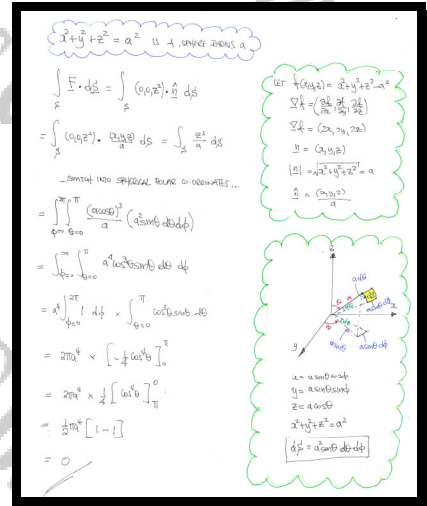 x² + y² + z² = a² IS A SPHERE RADIUS a
∫_S F · dS = ∫_S (0,0,z²) · n̂ dS
= ∫_S (0,0,z²) · (x,y,z)/a dS = ∫_S z³/a dS
...SWITCH INTO SPHERICAL POLAR CO-ORDINATES...
= ∫_{φ=0}^{2π} ∫_{θ=0}^{π} (acosθ)³/a (a²sinθ dθ dφ)
= ∫_{φ=0}^{2π} ∫_{θ=0}^{π} a⁴cos³θsinθ dθ dφ
= a⁴ ∫_{φ=0}^{2π} 1 dφ × ∫_{θ=0}^{π} cos³θ sinθ dθ
= 2πa⁴ × [-¼ cos⁴θ]_0^π
= 2πa⁴ × ¼ [cos⁴θ]_π^0
= ½πa⁴ [1 - 1]
= 0
LET f(x,y,z) = x² + y² + z² - a²
∇f = (∂f/∂x, ∂f/∂y, ∂f/∂z)
∇f = (2x, 2y, 2z)
n = (x,y,z)
|n| = √(x² + y² + z²) = a
n̂ = (x,y,z)/a
z
adθ
x
y
asinθ
asinθ dφ
x = asinθcosφ
y = asinθsinφ
z = acosθ
x² + y² + z² = a²
dS = a²sinθ dθ dφ